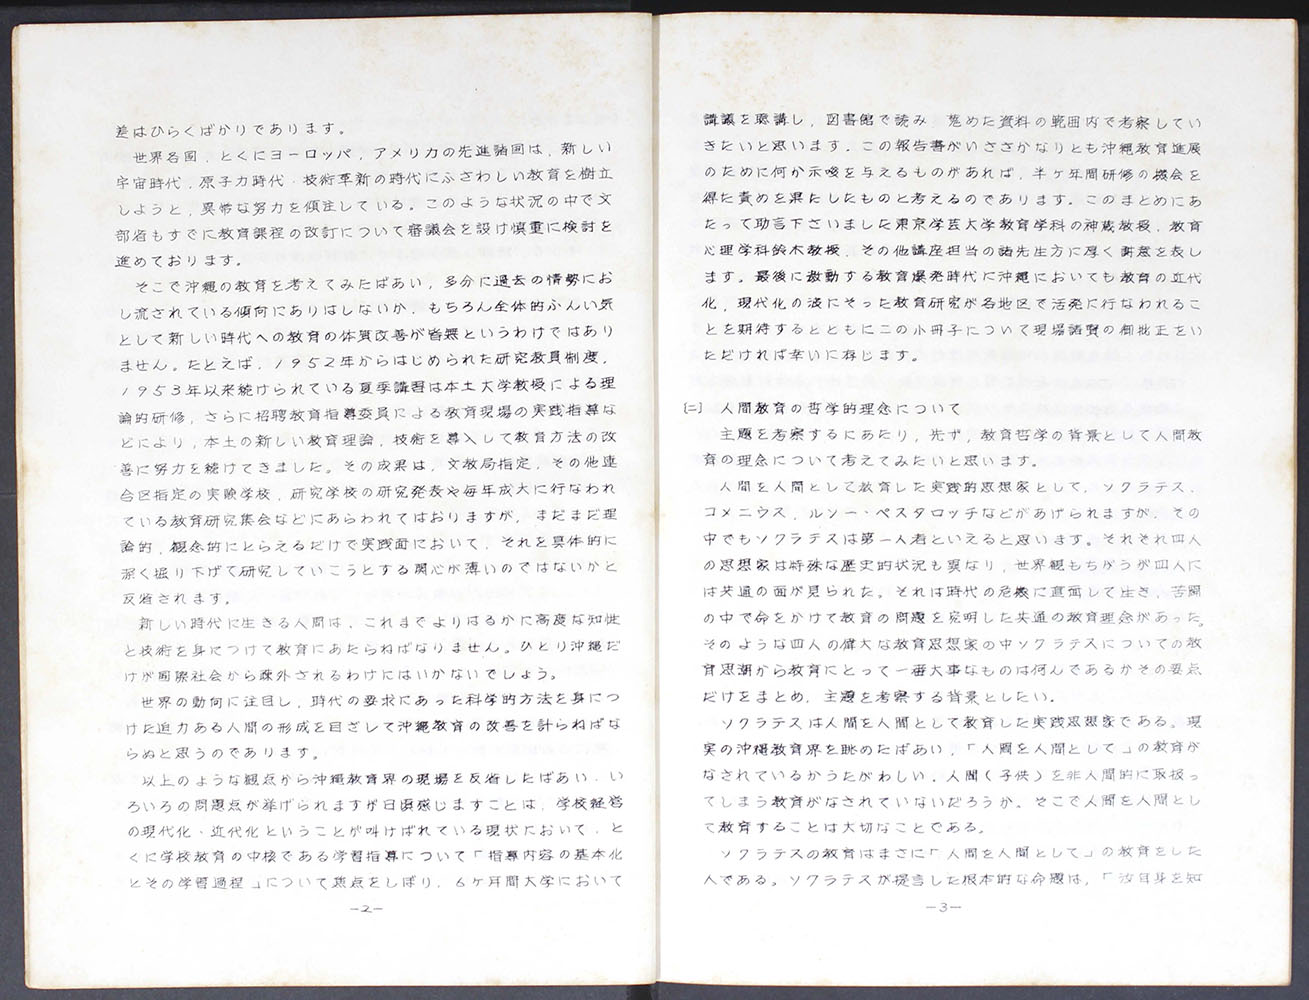 差はひらくばかりであります。
世界各国，とくにヨーロッパ，アメリカの先進諸国は，新しい
宇宙時代，原子力時代・技術革新の時代にふさわしい教育を樹立
しようと，異常な努力を傾注している。このような状況の中で文
部省もすでに教育課程の改訂について審議会を設け慎重に検討を
進めております。
そこで沖縄の教育を考えてみたばあい，多分に過去の情勢にお
し流されている傾向にありはしないか，もちろん全体的ふんい気
として新しい時代への教育の体質改善が皆無というわけではあり
ません。たとえば，1952年からはじめられた研究教員制度，
1953年以来続けられている夏季講習は本土大学教授による理
論的研修，さらに招聘教育指導委員による教育現場の実践指導な
どにより，本土の新しい教育理論，技術を導入して教育方法の改
善に努力を続けてきました。その成果は，文教局指定，その他連
合区指定の実験学校，研究学校の研究発表や毎年盛大に行なわれ
ている教育研究集会などにあらわれてはおりますが，まだまだ理
論的，観念的にとらえるだけで実践面において，それを具体的に
深く掘り下げて研究していこうとする関心が薄いのではないかと
反省されます。
新しい時代に生きる人間は，これまでよりはるかに高度な知性
と技術を身につけて教育にあたらねばなりません。ひとり沖縄だ
けが国際社会から疎外されるわけにはいかないでしょう。
世界の動向に注目し，時代の要求にあった科学的方法を身につ
けた迫力ある人間の形成を目ざして沖縄教育の改善を計らねばな
らぬと思うのであります。
以上のような観点から沖縄教育界の現場を反省したばあい，い
ろいろの問題点が挙げられますが日頃感じますことは，学校経営
の現代化・近代化ということが叫けばれている現状において，と
くに学校教育の中核である学習指導について「指導内容の基本化
とその学習過程」について焦点をしぼり，6ヶ月間大学において
－2－
講義を聴講し，図書館で読み，集めた資料の範囲内で考察してい
きたいと思います。この報告書がいささかなりとも沖縄教育進展
のために何か示唆を与えるものがあれば，半ヶ年間研修の機会を
得た責めを果たしたものと考えるのであります。このまとめにあ
たって助言下さいました東京学芸大学教育学科の神蔵教授，教育
心理学科鈴木教授，その他講座担当の諸先生方に厚く謝意を表し
ます。最後に激動する教育爆発時代に沖縄においても教育の近代
化，現代化の波にそった教育研究が各地区で活発に行なわれるこ
とを期待するとともにこの小冊子について現場諸賢の御批正をい
ただければ幸いに存じます。
〔二〕　人間教育の哲学的理念について
主題を考察するにあたり，先ず，教育哲学の背景として人間教
育の理念について考えてみたいと思います。
人間を人間として教育した実践的思想家として，ソクラテス，
コメニウス，ルソー・ペスタロッチなどがあげられますが，その
中でもソクラテスは第一人者といえると思います。それぞれ四人
の思想家は特殊な歴史的状況も異なり，世界観もちがうが四人に
は共通の面が見られた。それは時代の危機に直面して生き，苦悶
の中で命をかけて教育の問題を究明した共通の教育理念があった。
そのような四人の偉大な教育思想家の中ソクラテスについての教
育思潮から教育にとって一番大事なものは何んであるかその要点
だけをまとめ，主題を考察する背景としたい。
ソクラテスは人間を人間として教育した実践思想家である。現
実の沖縄教育界を眺めたばあい，「人間を人間として」の教育が
なされているかうたがわしい，人間（子供）を非人間的に取扱っ
てしまう教育がなされていないだろうか。そこで人間を人間とし
て教育することは大切なことである。
ソクラテスの教育はまさに「人間を人間として」の教育をした
人である。ソクラテスが提言した根本的な命題は，「汝自身を知
－3－